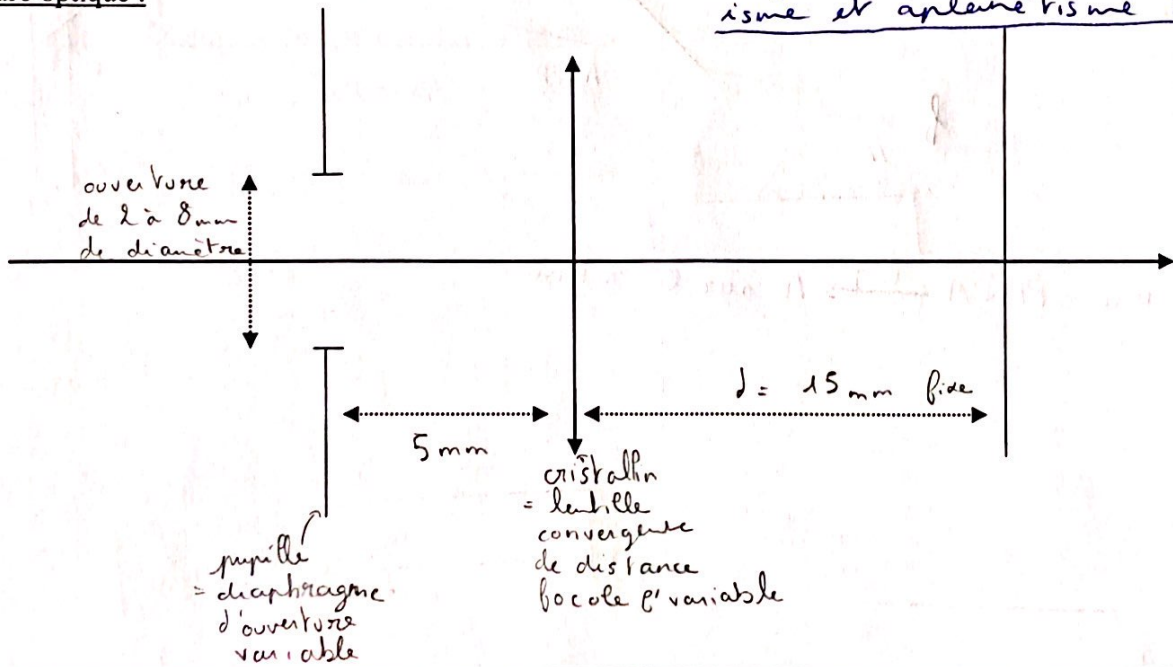 optique :
isme et aplanétisme
ouverture
de 2 à 8mm
de diamètre
d = 15mm fixe
5mm
cristallin
= lentille
convergente
de distance
focale f' variable
pupille
= diaphragme
d'ouverture
variable